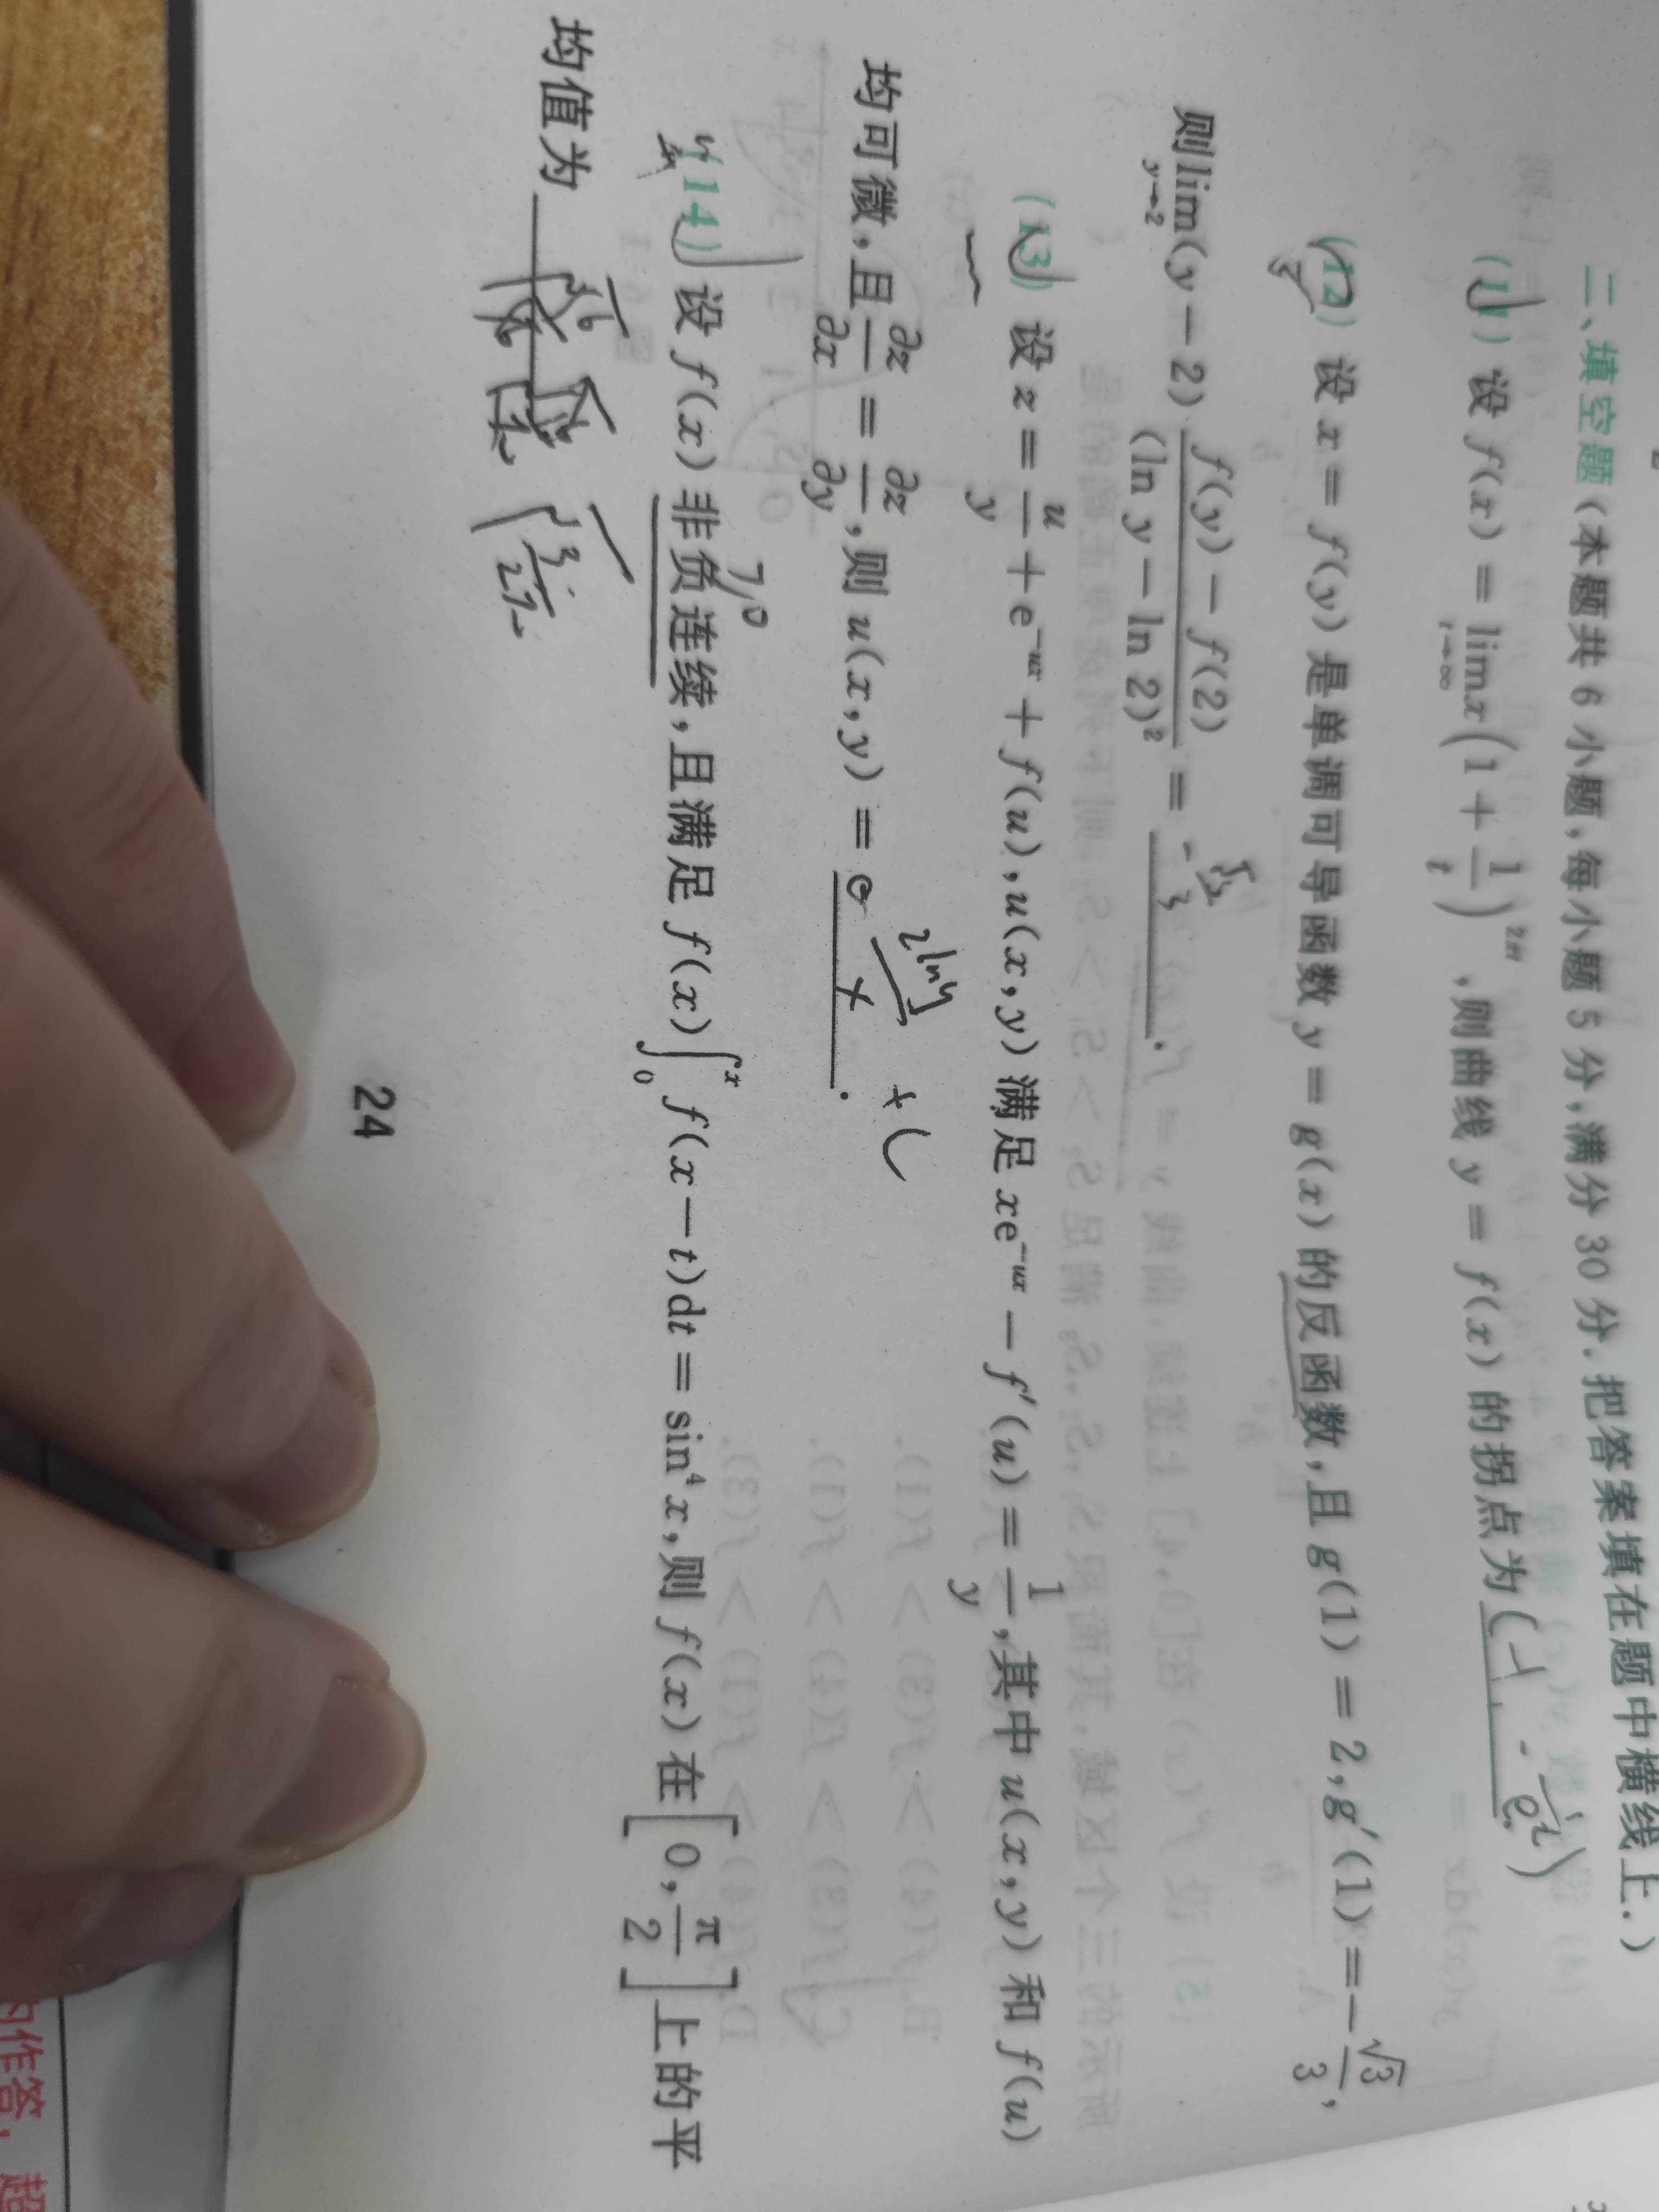 二、填空题(本题共 6 小题,每小题 5 分,满分 30 分.把答案填在题中横线上.)
(11) 设 f(x) = lim_{t→∞} x(1 + 1/t)^{2xt},则曲线 y = f(x) 的拐点为(-1, -1/e²)
(12) 设 x = f(y) 是单调可导函数 y = g(x) 的反函数,且 g(1) = 2,g′(1) = -√3/3,
则 lim_{y→2} (y - 2) · (f(y) - f(2))/(ln y - ln 2)² = .
(13) 设 z = u/y + e^{-ux} + f(u),u(x,y) 满足 xe^{-ux} - f′(u) = 1/y,其中 u(x,y) 和 f(u)
均可微,且 ∂z/∂x = ∂z/∂y,则 u(x,y) = .
2lny
x
+C
(14) 设 f(x) 非负连续,且满足 f(x)∫_0^x f(x - t)dt = sin⁴x,则 f(x) 在 [0, π/2] 上的平
≥0
均值为
24